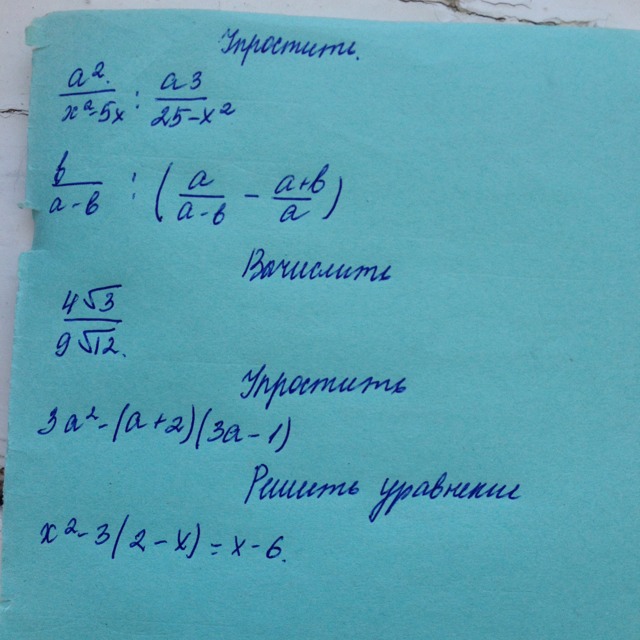 Упростить.
a²/(x²-5x) : a3/(25-x²)
b/(a-b) : (a/(a-b) - (a+b)/a)
Вычислить
4√3/9√12.
Упростить
3a²-(a+2)(3a-1)
Решить уравнение
x²-3(2-x)=x-6.